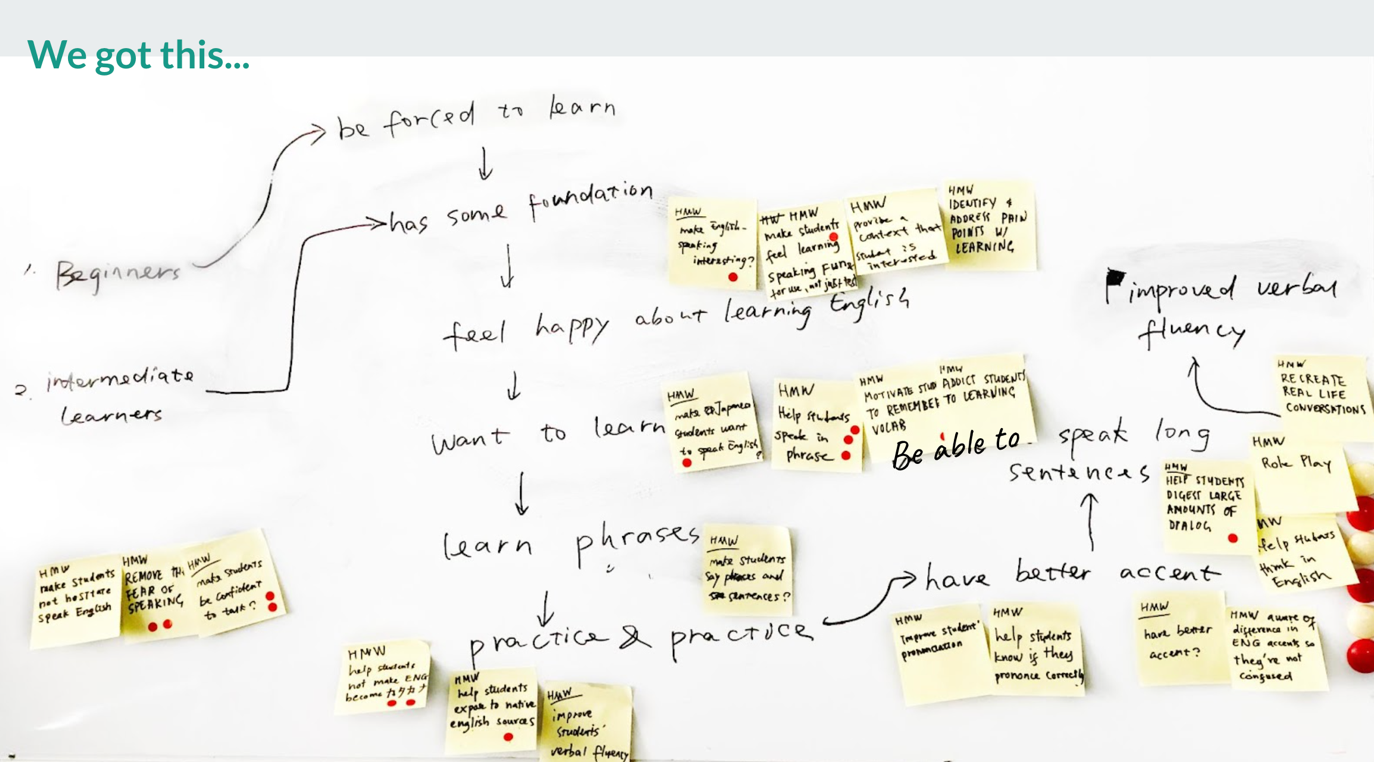 We got this...
be forced to learn
has some foundation
1. Beginners
2. intermediate
learners
HMW
make English-
speaking
interesting?
HMW
make students
feel learning
speaking FUN
for use, not just test
HMW
provide a
context that
student is
interested
HMW
IDENTIFY &
ADDRESS PAIN
POINTS W/
LEARNING
feel happy about learning English
want to learn
HMW
make Japanese
students want
to speak English
?
HMW
Help students
speak in
phrase
HMW
MOTIVATE STUD
TO REMEMBER
VOLAB
HMW
ADDICT STUDENTS
TO LEARNING
Be able to speak long
sentences
improved verbal
fluency
HMW
RECREATE
REAL LIFE
CONVERSATIONS
HMW
Role Play
HMW
HELP STUDENTS
DIGEST LARGE
AMOUNTS OF
DIALOG
HMW
Help students
think in
English
learn phrases
HMW
make students
say phrases and
sentences?
have better accent
practice & practice
HMW
make students
not hesitate
speak English
HMW
REMOVE THE
FEAR OF
SPEAKING
HMW
make students
be confident
to talk?
HMW
help students
not make ENG
become カタカナ
HMW
help students
expose to native
english sources
HMW
improve
students'
verbal fluency
HMW
Improve student'
pronunciation
HMW
help students
know if they
prononce correctly
HMW
have better
accent?
HMW aware of
difference in
ENG accents so
they're not
confused